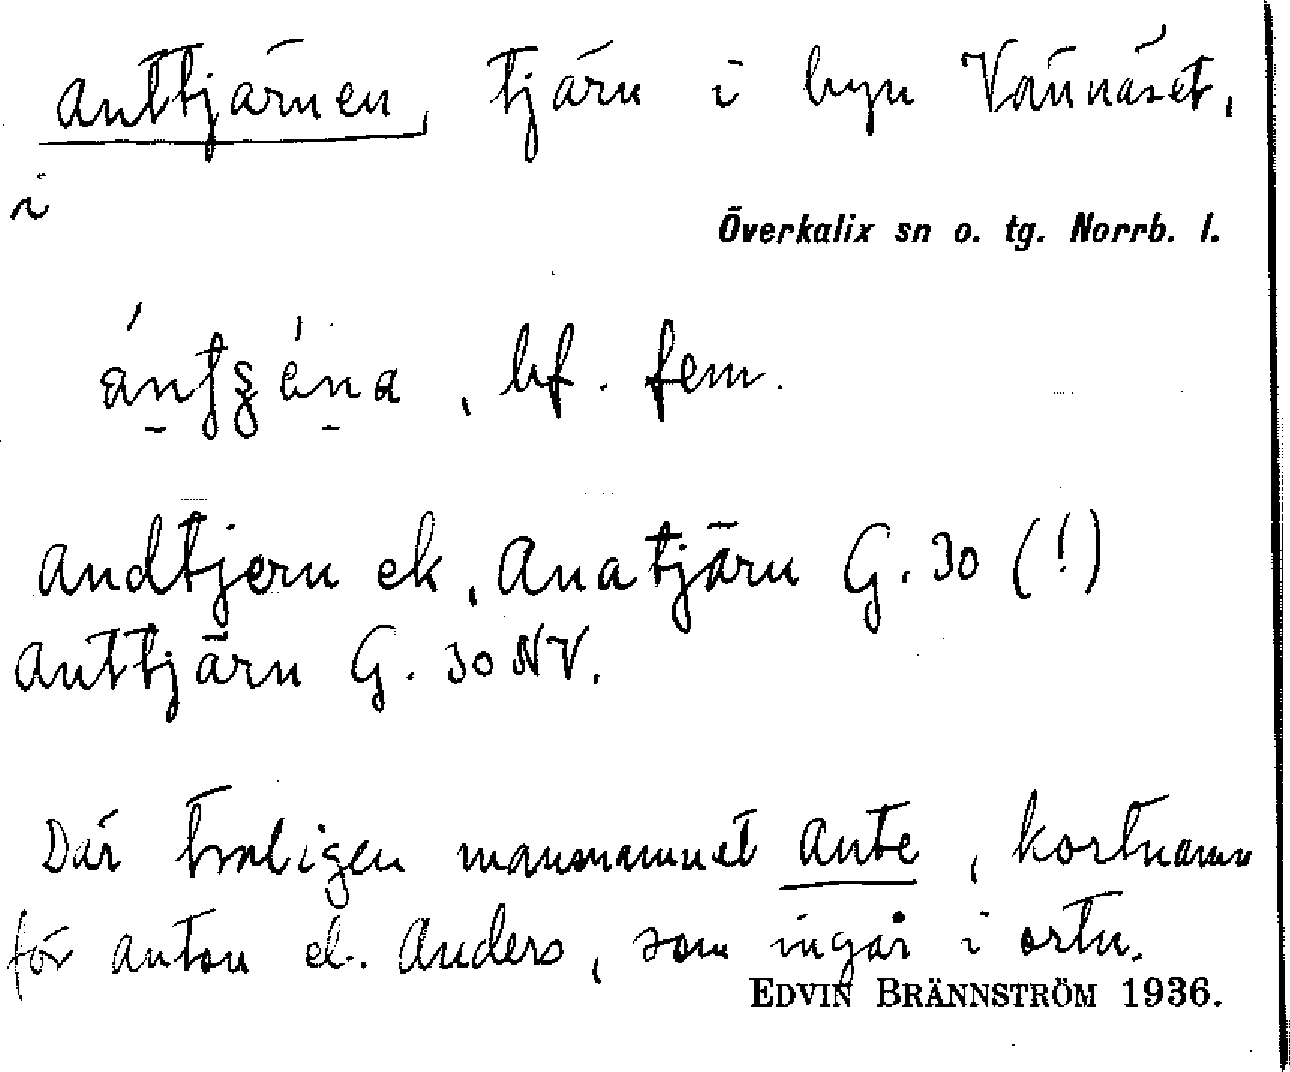 Anttjärnen, tjärn i byn Vännäset,
i
Överkalix sn o. tg. Norrb. l.
, bf. fem.
Andtjern ek, Anatjärn G. 30 (!)
Anttjärn G. 30 NV.
Där troligen mansnamnet Ante, kortnamn
för Anton el. Anders, som ingår i ortn.
EDVIN BRÄNNSTRÖM 1936.